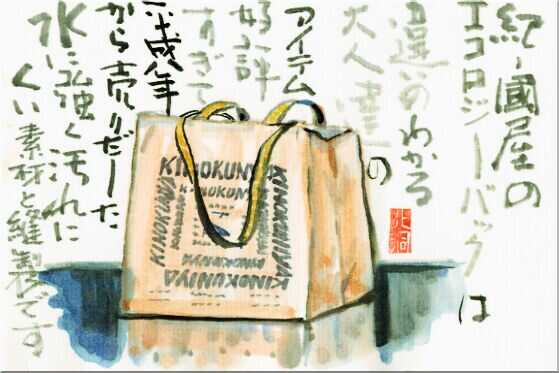 紀ノ國屋の
エコロジーバッグは
違いのわかる
大人達の
アイテム
好評
すぎて
平成八年
から売りだした
水に強く汚れに
くい素材と縫製です
KINOKUNIYA
KINOKUNIYA
KINOKUNIYA
KINOKUNIYA